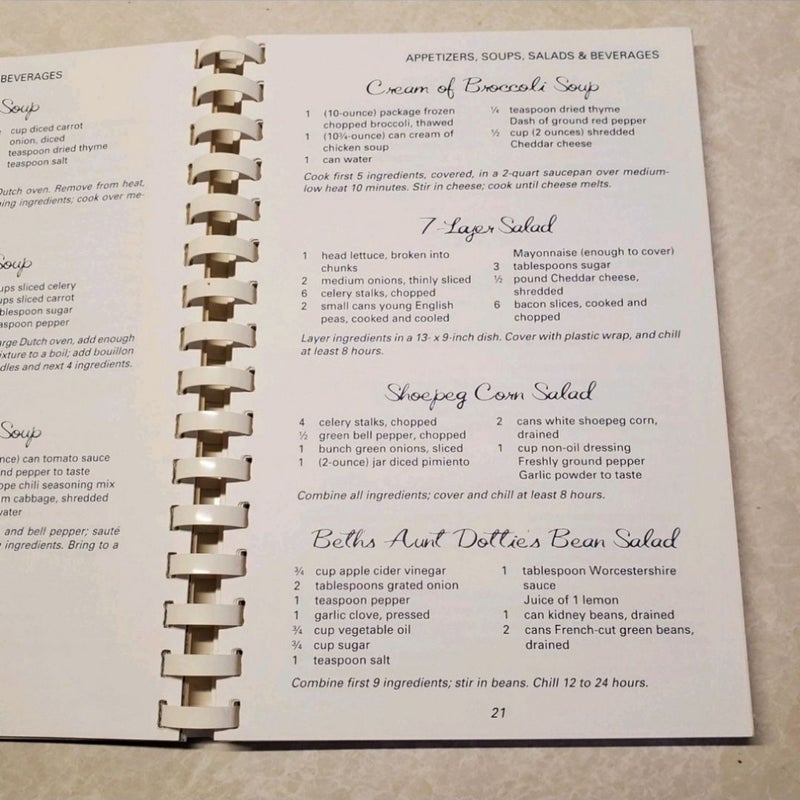 BEVERAGES
Soup
cup diced carrot
onion, diced
teaspoon dried thyme
teaspoon salt
Dutch oven. Remove from heat,
ing ingredients; cook over me-
Soup
ups sliced celery
ups sliced carrot
blespoon sugar
aspoon pepper
arge Dutch oven, add enough
ixture to a boil; add bouillon
dles and next 4 ingredients.
Soup
nce) can tomato sauce
nd pepper to taste
ope chili seasoning mix
m cabbage, shredded
water
and bell pepper; sauté
ingredients. Bring to a
APPETIZERS, SOUPS, SALADS & BEVERAGES
Cream of Broccoli Soup
1 (10-ounce) package frozen
chopped broccoli, thawed
1 (10¾-ounce) can cream of
chicken soup
1 can water
¼ teaspoon dried thyme
Dash of ground red pepper
½ cup (2 ounces) shredded
Cheddar cheese
Cook first 5 ingredients, covered, in a 2-quart saucepan over medium-
low heat 10 minutes. Stir in cheese; cook until cheese melts.
7-Layer Salad
1 head lettuce, broken into
chunks
2 medium onions, thinly sliced
6 celery stalks, chopped
2 small cans young English
peas, cooked and cooled
Mayonnaise (enough to cover)
3 tablespoons sugar
½ pound Cheddar cheese,
shredded
6 bacon slices, cooked and
chopped
Layer ingredients in a 13- x 9-inch dish. Cover with plastic wrap, and chill
at least 8 hours.
Shoepeg Corn Salad
4 celery stalks, chopped
½ green bell pepper, chopped
1 bunch green onions, sliced
1 (2-ounce) jar diced pimiento
2 cans white shoepeg corn,
drained
1 cup non-oil dressing
Freshly ground pepper
Garlic powder to taste
Combine all ingredients; cover and chill at least 8 hours.
Beths Aunt Dottie's Bean Salad
¾ cup apple cider vinegar
2 tablespoons grated onion
1 teaspoon pepper
1 garlic clove, pressed
¾ cup vegetable oil
¾ cup sugar
1 teaspoon salt
1 tablespoon Worcestershire
sauce
Juice of 1 lemon
1 can kidney beans, drained
2 cans French-cut green beans,
drained
Combine first 9 ingredients; stir in beans. Chill 12 to 24 hours.
21